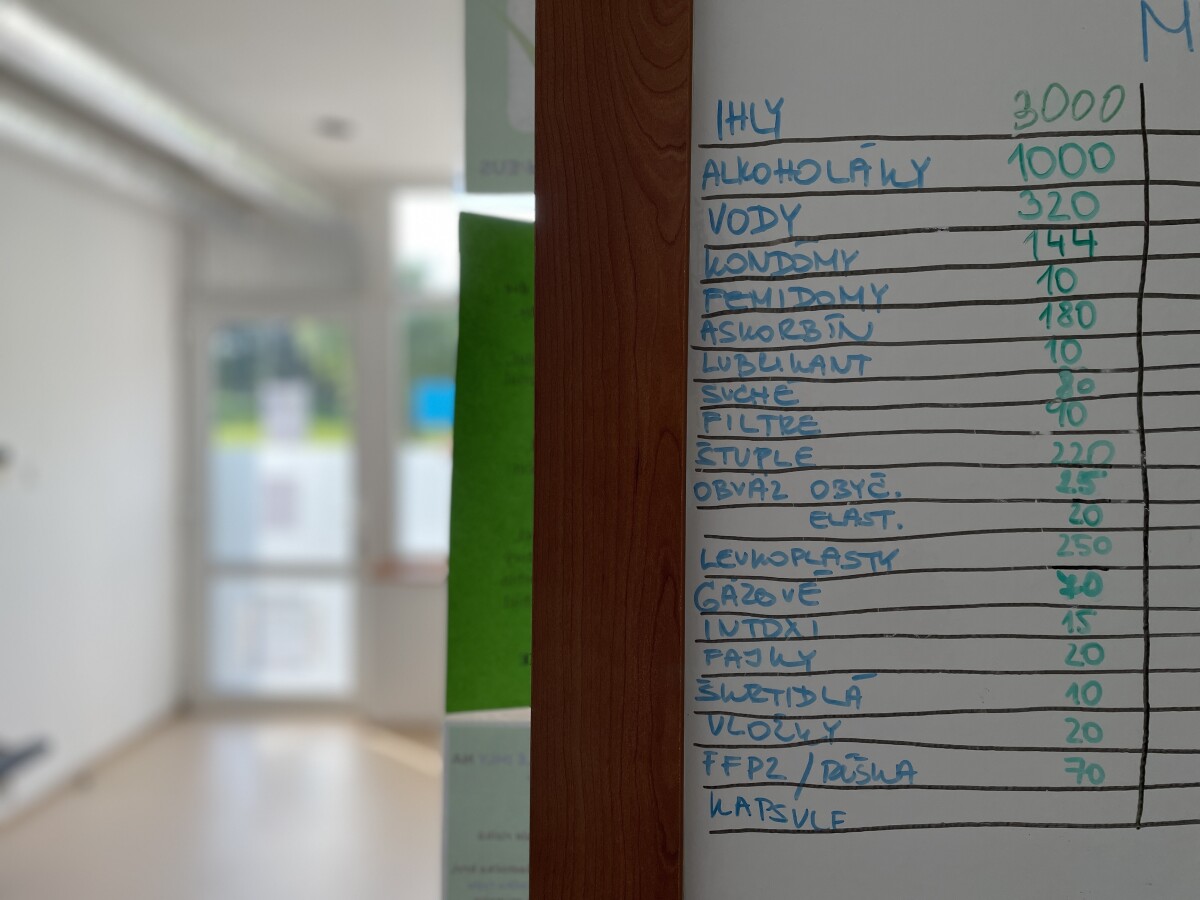 M
IHLY 3000
ALKOHOLÁKY 1000
VODY 320
KONDÓMY 144
FEMIDOMY 10
ASKORBÍN 180
LUBRIKANT 10
SUCHÉ 80
FILTRE 90
ŠTUPLE 220
OBVÄZ OBYČ. 25
ELAST. 20
LEUKOPLASTY 250
GÁZOVÉ 70
INTOXI 15
FAJKY 20
ŠKRTIDLÁ 10
VLOŽKY 20
FFP2 / RÚŠKA 70
KAPSULE